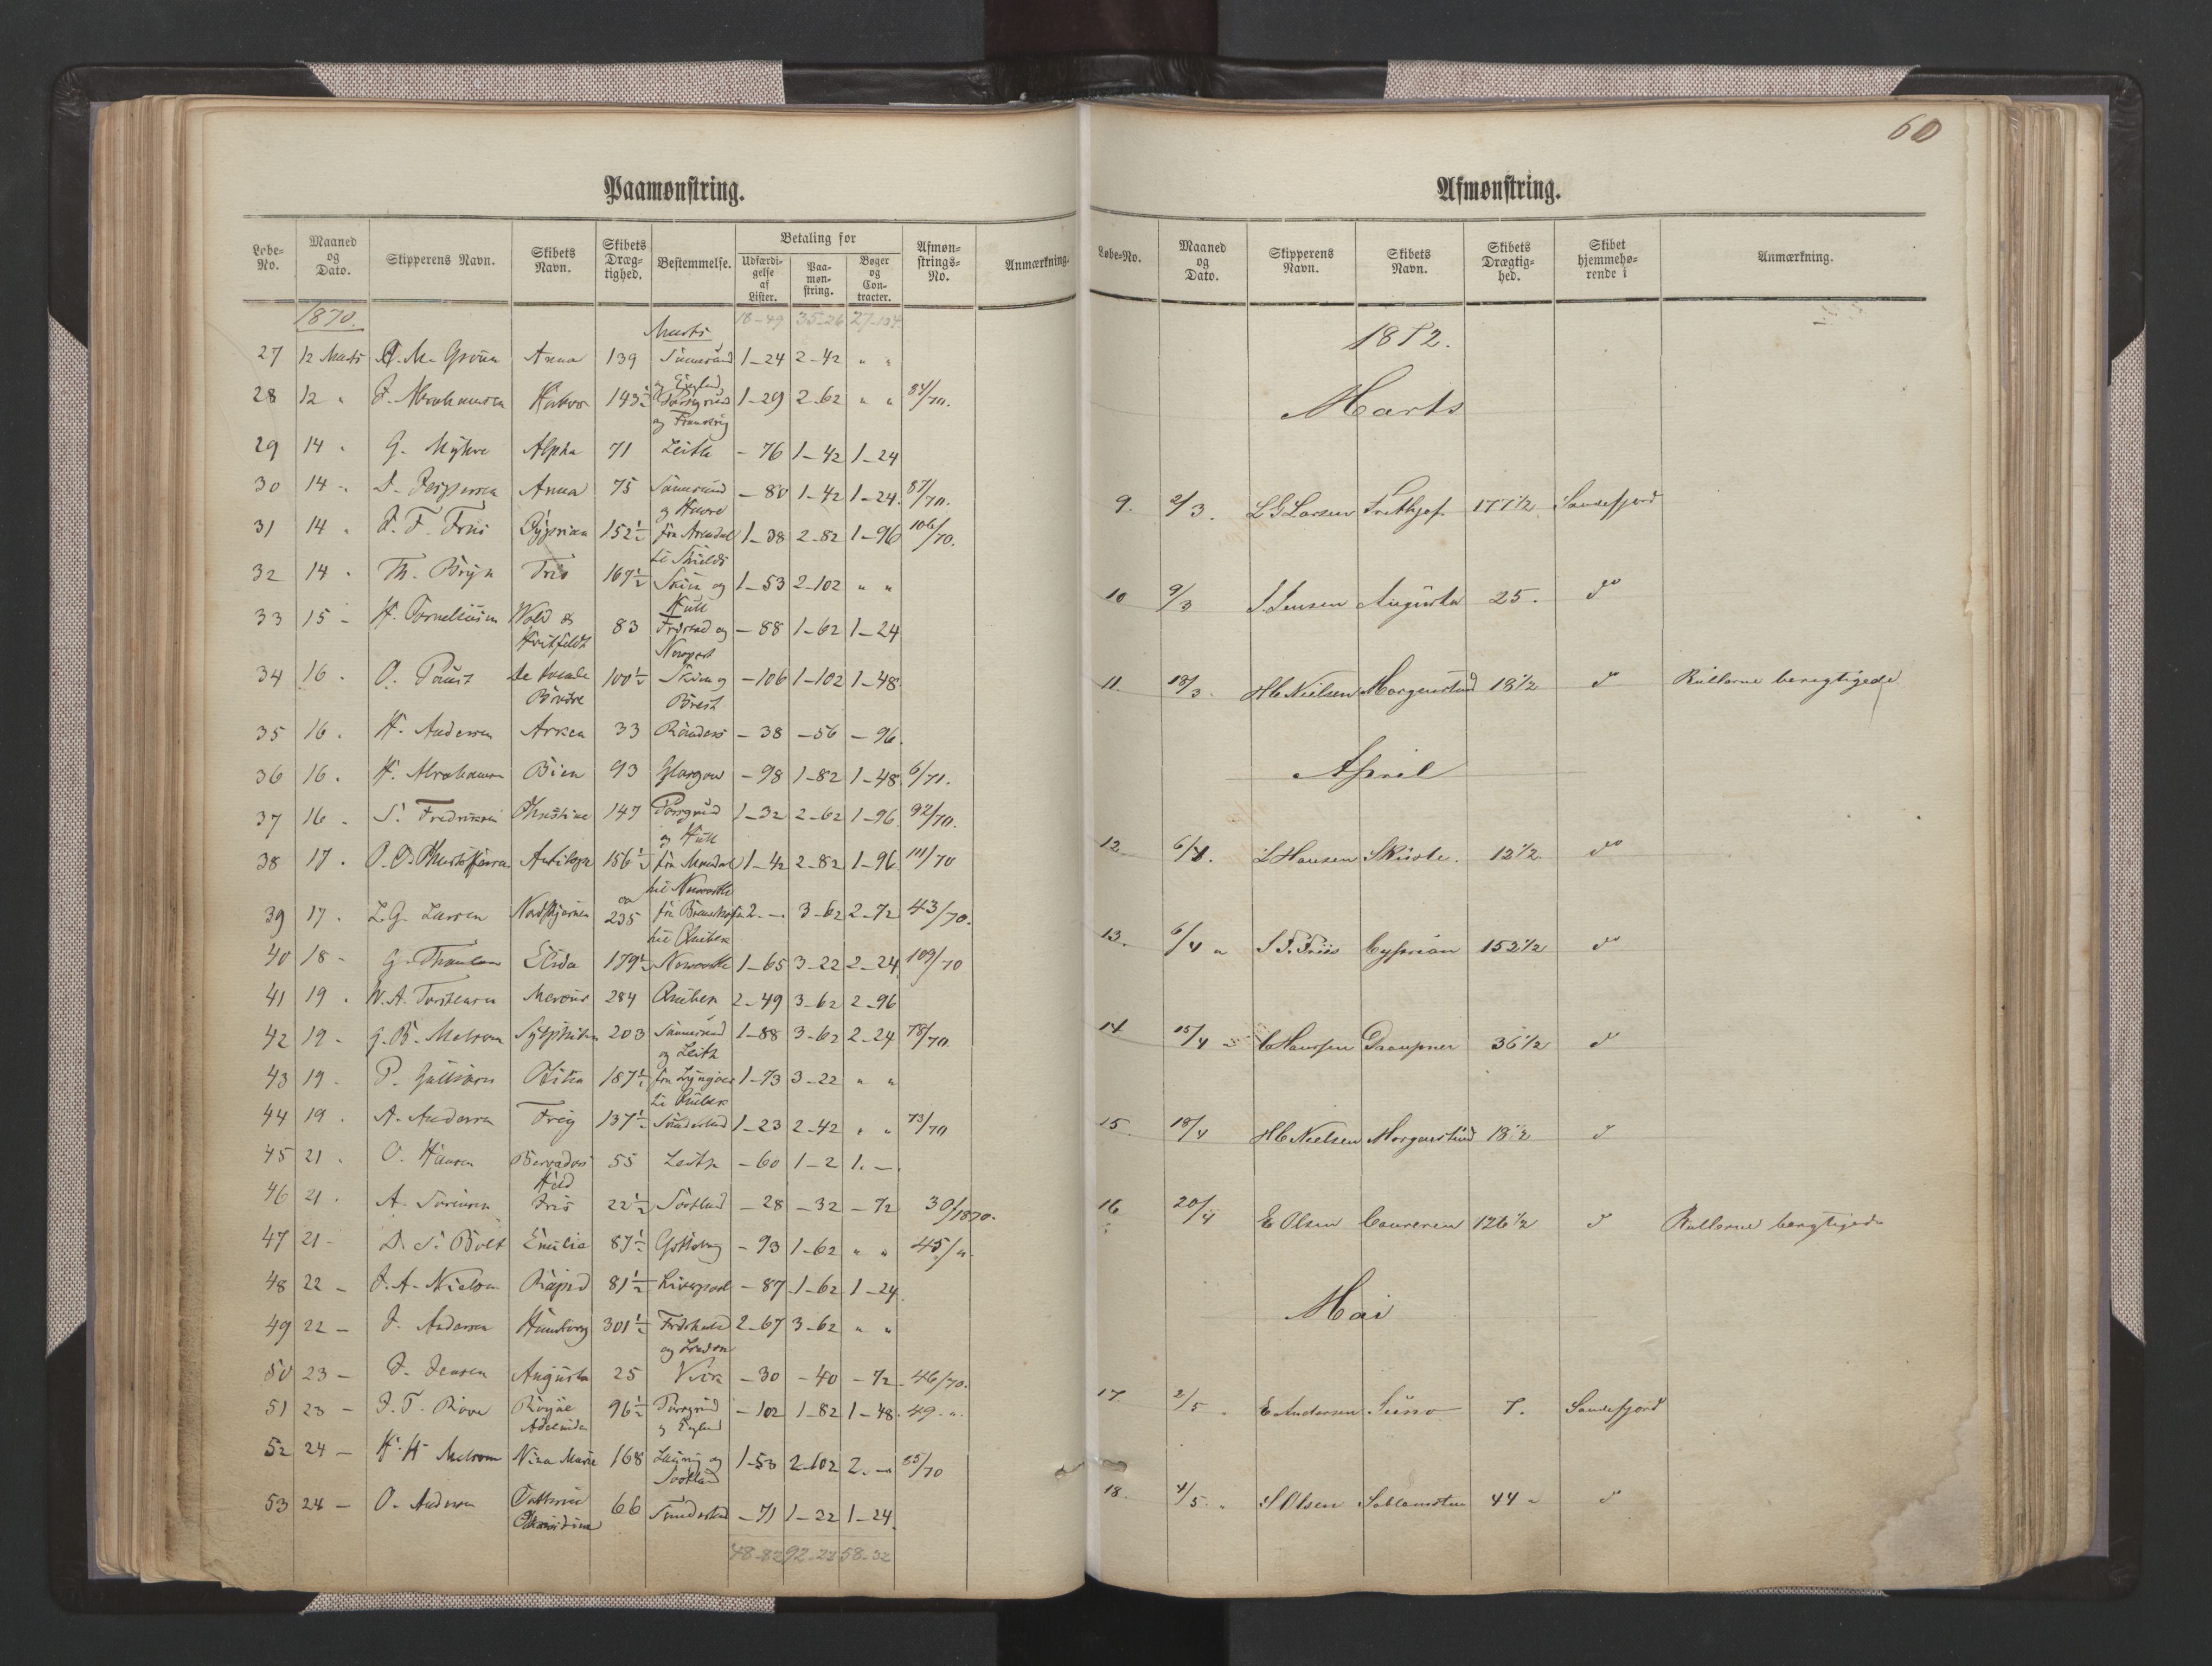 60
Paamønstring.
Løbe-No. Maaned og Dato. Skipperens Navn. Skibets Navn. Skibets Dræg-tighed. Bestemmelse. Betaling for Udfærdi-gelse af Lister. Paa-møn-string. Bøger og Con-tracter. Afmøn-strings-No. Anmærkning.
1870. Marts 18-49 35-26 27-104
27 12 Marts A. M. Anna 139 1-24 2-42 " "
og England
28 12 " J. Abrahamsen 143½ Porsgrund 1-29 2-62 " " 84/70.
og Frankrig
29 14 " G. Myhre Alpha 71 Leith - 76 1-42 1-24
30 14 - D. Jespersen Anna 75 - 80 1-42 1-24. 87/70.
og Havre
31 14 " J. F. Friis Cyprian 152½ fra Arendal 1-38 2-82 1-96 106/70.
til Shields
32 14 " Th. Bryn 1-53 2-102 " "
Skien og
Hull
33 15 - H. Corneliusen 83 Fredrstad og - 88 1-62 1-24
Hvitfeldt Newport
34 16 - O. Paust De tvende 100½ Skien og -106 1-102 1-48.
Brødre Brest
35 16 . H. Andersen Arken 33 Randers - 38 -56 - 96.
36 16 . H. Abrahamsen Bien 93 Glasgow - 98 1-82 1-48 6/71.
37 16 . S. Fredriksen Christine 147 Porsgrund 1-32 2-62 1-96. 92/70.
og Hull
38 17 . Antilope 156½ fra Mandal 1-42 2-82 1-96 111/70
til Newcastle
39 17 . L. G. Larsen Nordstjernen 235 2.- 3-62 2-72 43/70.
til Quebek
40 18 - Elida 179½ Newcastle 1-65 3-22 2-24 109/70
41 19 . Mercur 284 Quebek 2-49 3-62 2-96
42 19 - G. B. Melsom Sylphiden 203 1-88 3-62 2-24 78/70.
og Leith
43 19 - P. 187½ fra Lyngør 1-73 3-22 " "
til Quebek
44 19 . A. Andersen Freig 137½ Sunderland 1-23 2-42 " " 73/70
45 21 . O. Hansen 55 Leith - 60 1-2 1.-.
46 21 . A. Sørensen Iris 22½ Jutland - 28 -32 - 72 30/1870.
47 21 - D. S. Bolt Emilie 87½ Gøtteborg - 93 1-62 " " 45/".
48 22 - J. A. Nielsen Rapid 81½ Liverpool - 87 1-62 1-24.
49 22 - J. Andersen 301½ Fredrikshald 2-67 3-62 " "
og London
50 23 - J. Jensen Augusta 25 - 30 -40 - 72 46/70.
51 23 - J. T. 96½ Porsgrund -102 1-82 1-48. 49 - ".
Adelaide og England
52 24 - H. H. Melsom Nina Marie 168 Laurvig og 1-53 2-102 2.- 85/70
Skotland
53 24 - O. Andersen Cathrine 66 Sunderland - 71 1-22 1-24.
48-82 92-22 58-32
Afmønstring.
Løbe-No. Maaned og Dato. Skipperens Navn. Skibets Navn. Skibets Drægtig-hed. Skibet hjemmehø-rende i Anmærkning.
1872.
Marts
9. 2/3. L G Larsen Frithjof 177½ Sandefjord
10 9/3 J. Jensen Augusta 25. do
11. 18/3. H C Nielsen Morgenstund 18½ d Rullerne beregtigede
April
12 6/4. L Hansen Skirste. 12½ do
13. 6/4 " J F. Friis Cyprian 152½ do
14 15/4 C Hanssen Draupner 36½ d
15. 18/4 H C Nielsen Morgenstund 18½ d
16 20/4 E Olsen Coureren 126½ d Rullerne beregtigede
Mai
17 2/5 . E Andersen Juno 7. Sandefjord
18. 4/5. " S Olsen 44 " d